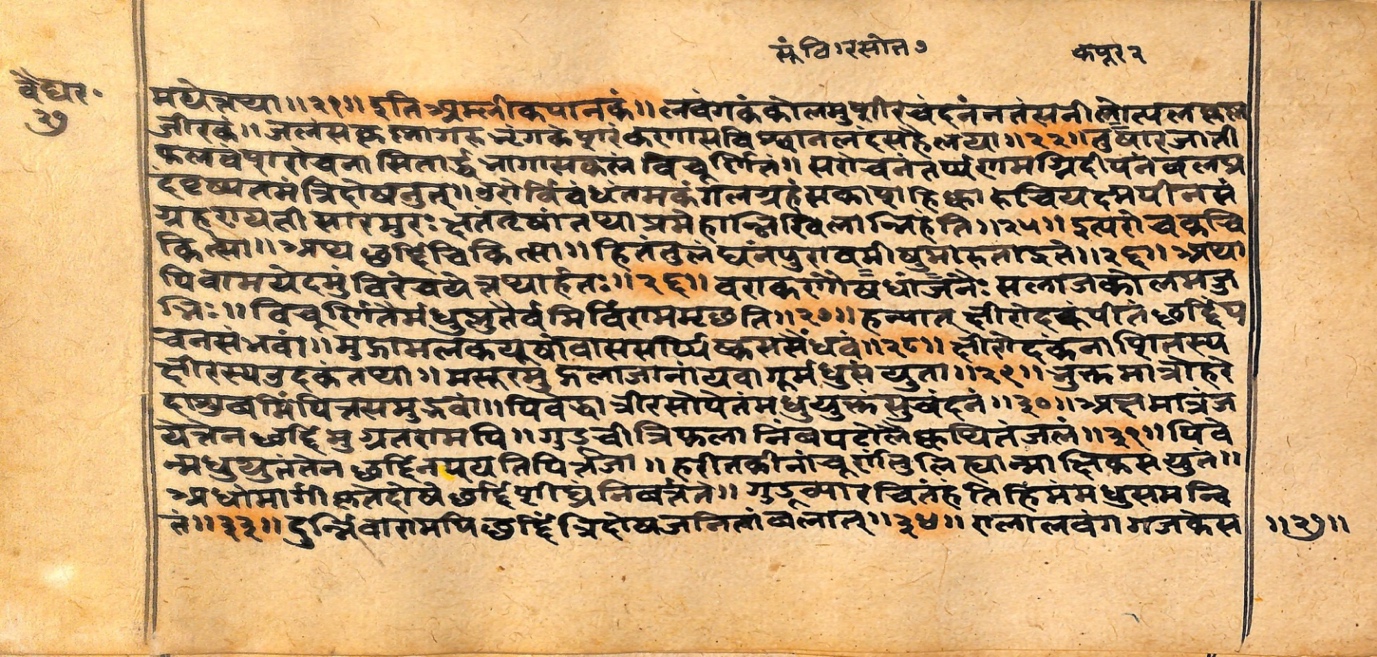 सूं वि । रसोन ७ कपूर २
वैद्यर॰
२७
मयेत्तथा ॥ २१ ॥ इति अमलीकपानकं ॥ लवंगकंकोलमुशीरचंदनंनतंसनीलोत्पल
जीरकं ॥ जलंसकृष्णागरुभृंगकेशरंकणासविश्वानलदंसहैलया ॥ २२ ॥ तुषारजाती
फलवंशरोचनासितार्द्धभागासकलंविचूर्णितं ॥ सरोचनंतर्प्पणमग्निदीपनंबलप्र
दंवृष्यतमंत्रिदोषनुत् ॥ उरोविबंधंतमकंगलग्रहंसकासहिक्कारुचियक्ष्मपीनसं
ग्रहण्यतीसारमुरःक्षतंतृषांतथाप्रमेहान्निखिलान्निहंति ॥ २५ ॥ इत्यरोचकचि
कित्सा ॥ अथ छर्दिचिकित्सा ॥ हितंतुलंघनंपुरावमीषुमारुतादृते ॥ २६ ॥ अथा
पिवामयेदमुंविरेचयेत्तथार्हतः ॥ २६ ॥ वराकणौषधांजनैः सलाजकोलमज्ज
भिः ॥ विचूर्णितैर्मधुप्लुतैर्वमिर्विराममृछति ॥ २७ ॥ हन्यात् क्षीरोदकंपीतंछर्दिंप
वनसंभवां ॥ मुद्गामलकयूषोवाससर्प्पिष्कससैंधवं ॥ २८ ॥ क्षीरोदकंनाशितस्य
क्षीरस्यउदकंतथा ॥ मसूरमुद्गलाजानांयवागूर्मधुसंयुता ॥ २९ ॥ भुक्तमात्रोहरे
दाशुवमिंपित्तसमुद्भवां ॥ पिवेद्धात्रीरसोपेतंमधुयुक्तंसुचंदनं ॥ ३० ॥ अक्षमात्रंज
येत्तेनछर्दिमुग्रतरामपि ॥ गुडूचीत्रिफलानिंबपटोलैःक्वथितंजलं ॥ ३१ ॥ पिवे
न्मधुयुतंतेनछर्दिनश्यतिपित्तजा ॥ हरीतकीनांचूर्णंतुलिह्यान्माक्षिकसंयुतं ॥
अधोमार्गीकृतदोषेछर्दिशीघ्रंनिवर्त्तते ॥ गुडूच्यारचितंहंतिहिमंमधुसमन्वि
तं ॥ ३३ ॥ दुर्न्निवारामपिछर्दिंत्रिदोषजनितांबलात् ॥ ३४ ॥ एलालवंगगजकेस
॥ २७ ॥